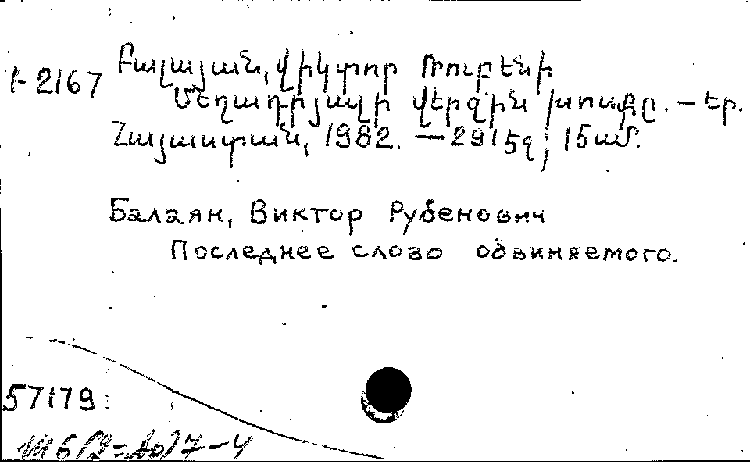 1-2167
Բալայան, Վիկտոր Ռուբենի
Մեղադրյալի վերջին խոսքը. — Եր.
Հայաստան, 1982. — 291 էջ, 15 սմ.
Балаян, Виктор Рубенович
Последнее слово одвиняемого.
57179